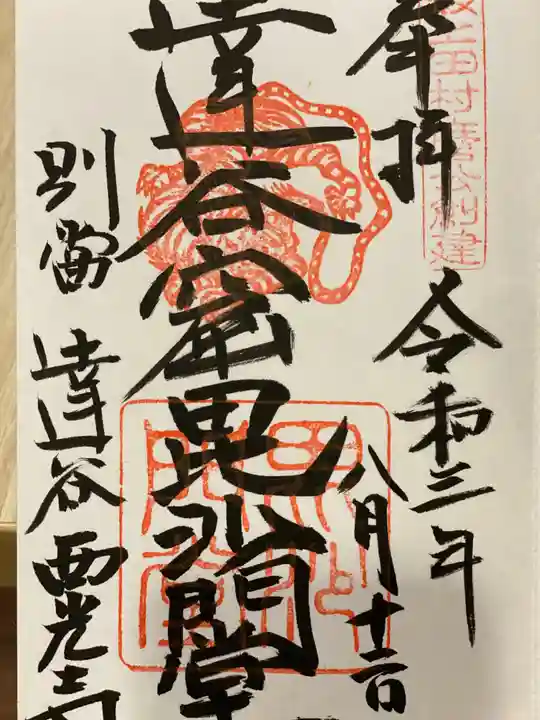 上田村麿公創建
奉拝
令和三年
八月十
達谷窟毘沙門堂
別當
達谷西光寺